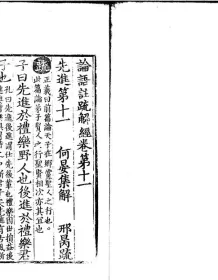 論語註疏解經卷第十一
先進第十一
何晏集解
邢昺疏
正義曰前篇論夫子在鄉黨聖人之行也
此篇論弟子賢人之行聖賢相次亦其宜也
子曰先進於禮樂野人也後進於禮樂君
子也
孔曰先進後進謂仕先後輩也禮樂因世損益